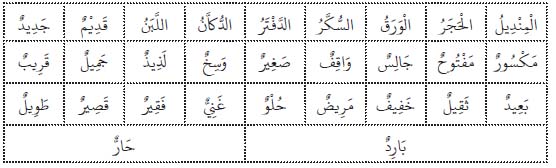 الْمِنْدِيلُ الْحَجَرُ الْوَرَقُ السُّكَّرُ الدَّفْتَرُ الدُّكَّانُ اللَّبَنُ قَدِيْمٌ جَدِيدٌ
مَكْسُورٌ مَفْتُوحٌ جَالِسٌ وَاقِفٌ صَغِيرٌ وَسِخٌ لَذِيذٌ جَمِيلٌ قَرِيبٌ
بَعِيدٌ ثَقِيلٌ خَفِيفٌ مَرِيضٌ حُلْوٌ غَنِيٌّ فَقِيرٌ قَصِيرٌ طَوِيلٌ
بَارِدٌ حَارٌّ